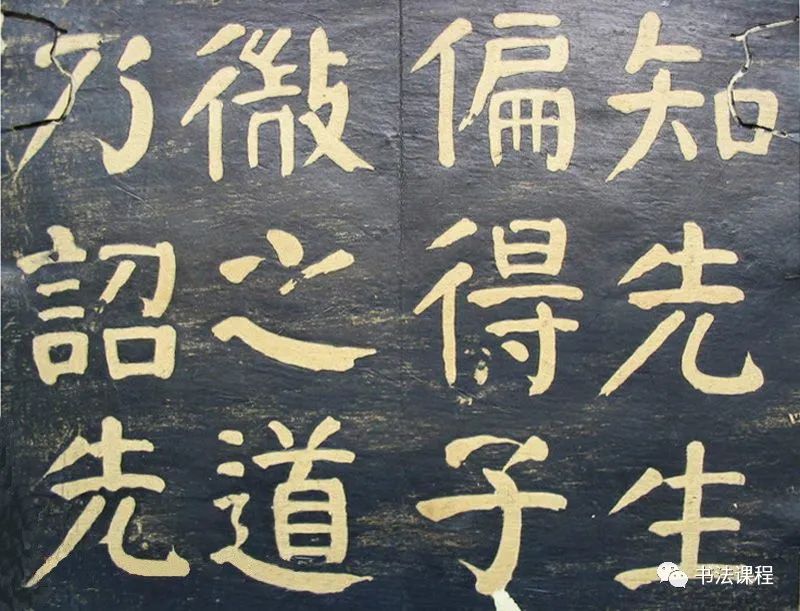 知先生
偏得子
微之道
乃詔先
书法课程